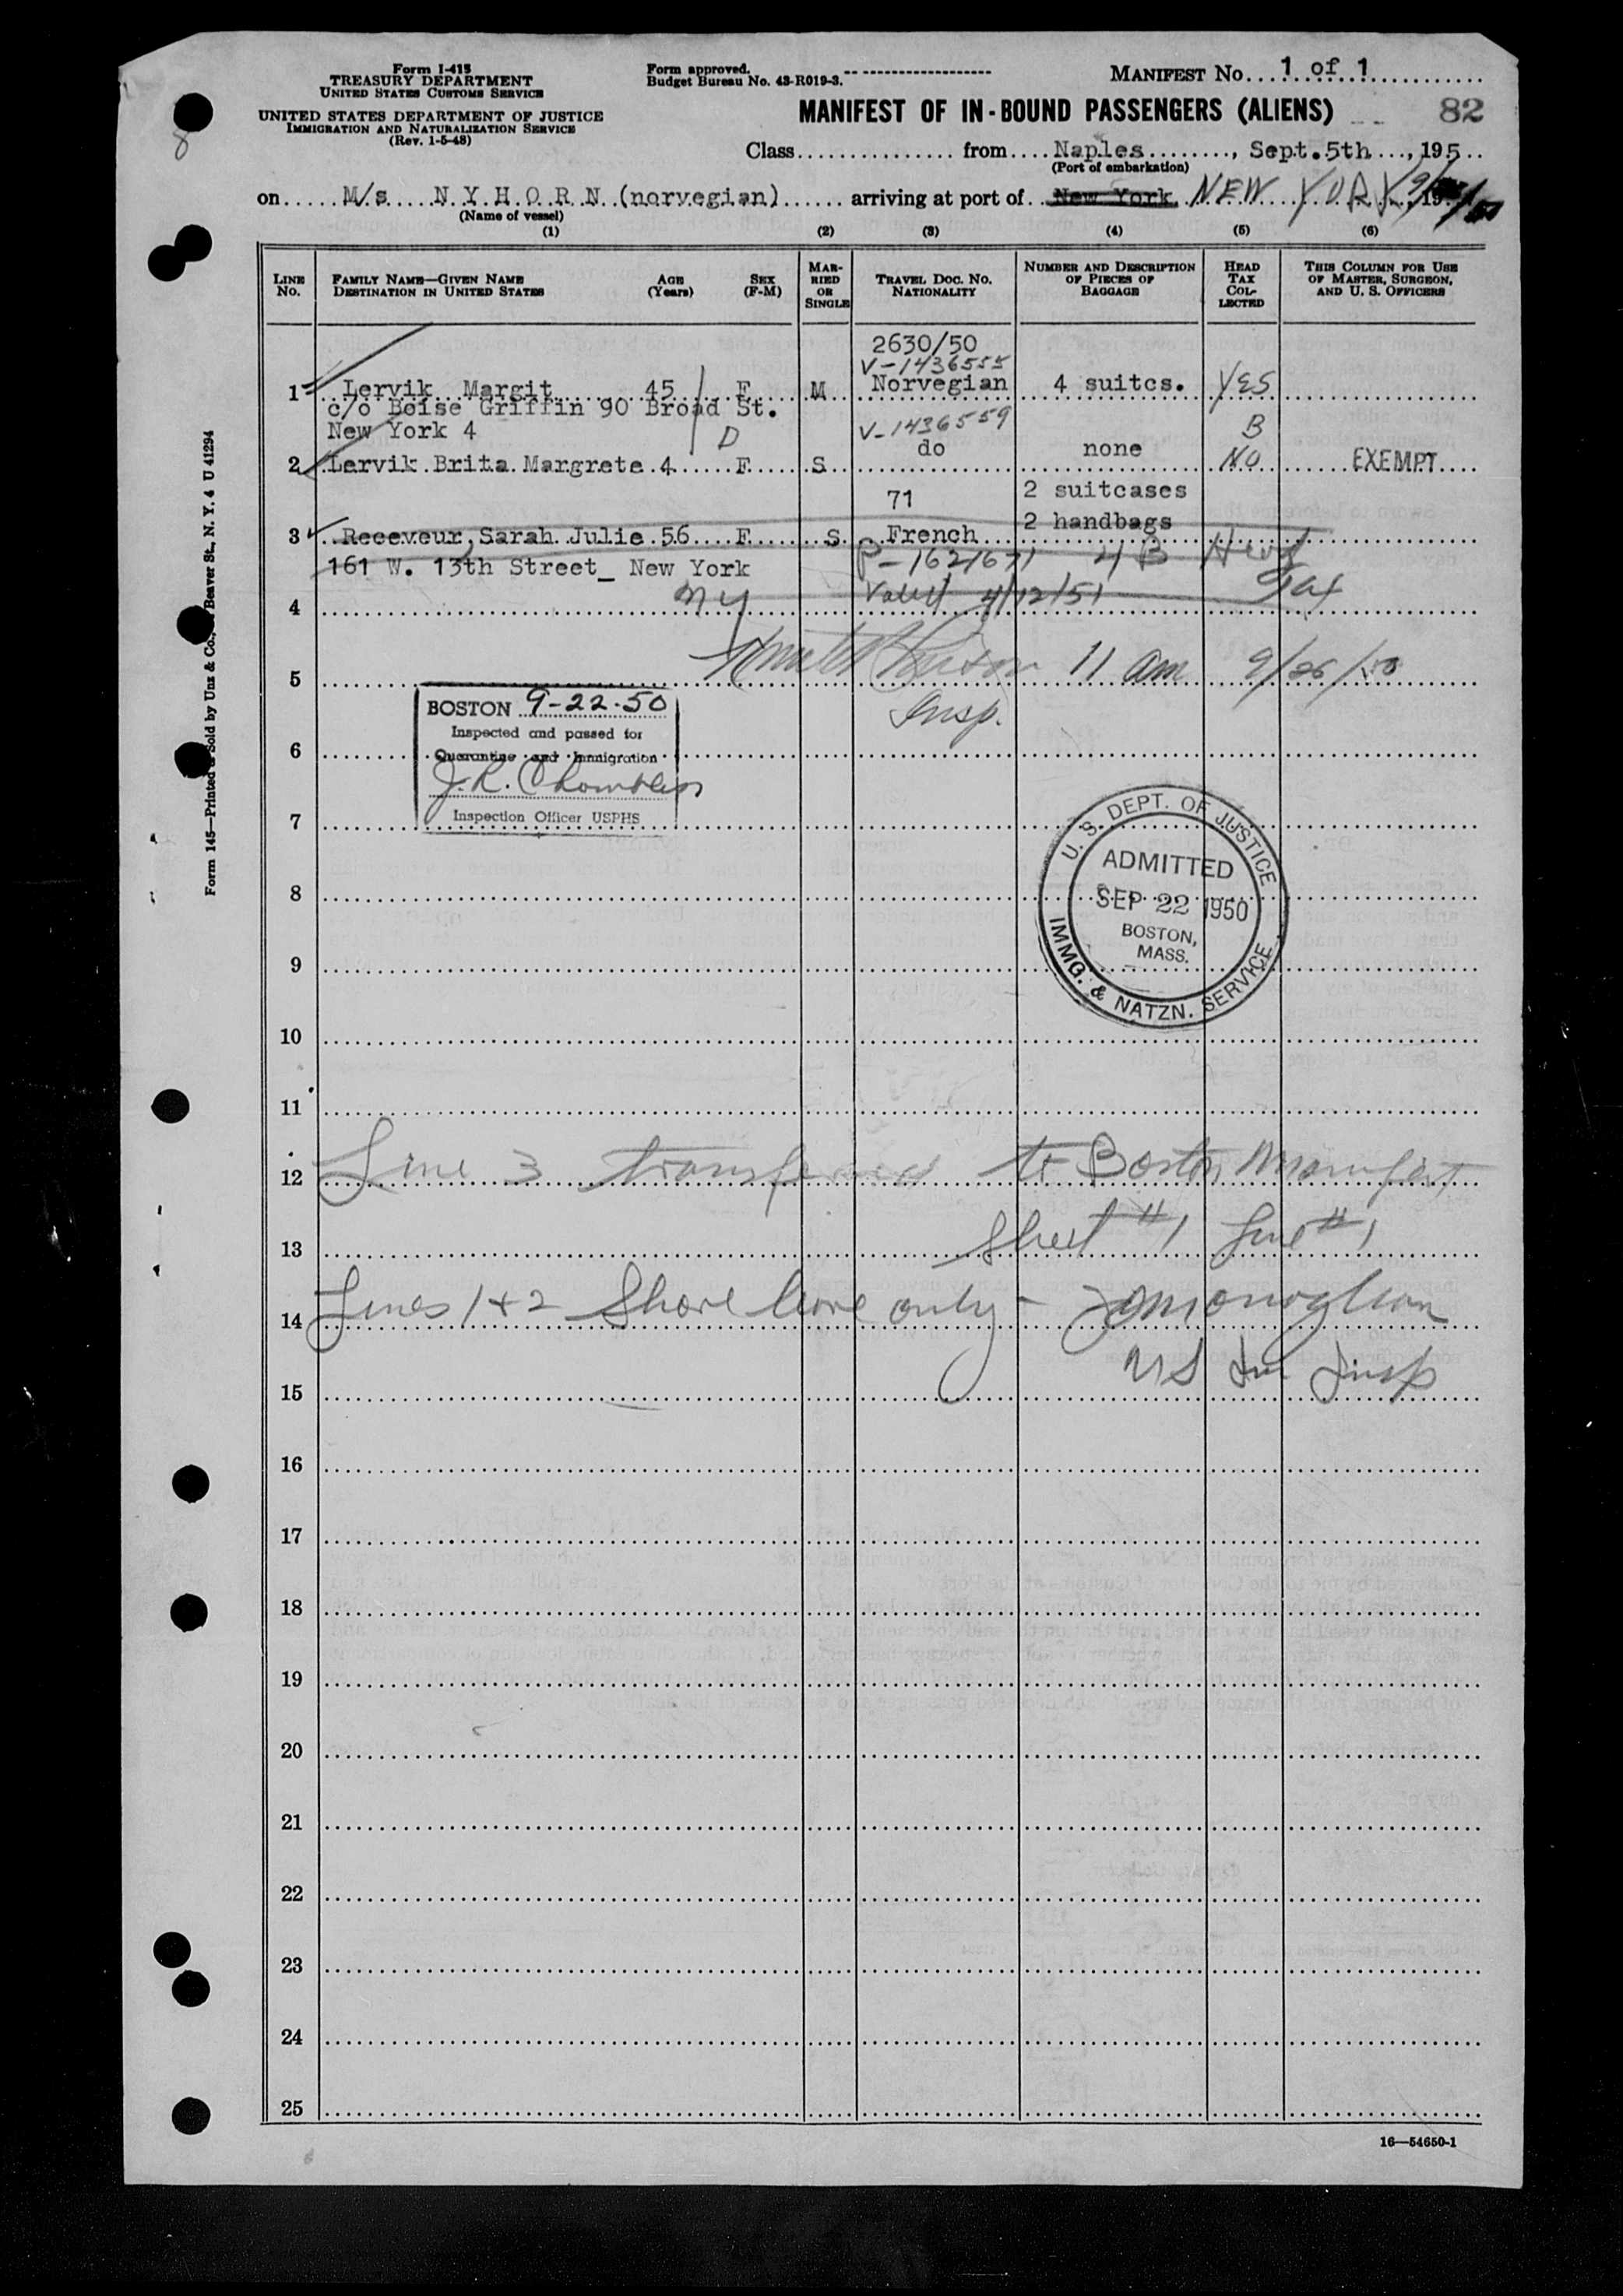 Form I-415
TREASURY DEPARTMENT
UNITED STATES CUSTOMS SERVICE
UNITED STATES DEPARTMENT OF JUSTICE
IMMIGRATION AND NATURALIZATION SERVICE
(Rev. 1-5-48)
Form approved.
Budget Bureau No. 43-R019-3.
MANIFEST No. 1 of 1
MANIFEST OF IN-BOUND PASSENGERS (ALIENS)
82
Class from Naples, Sept. 5th, 195
(Port of embarkation)
on M/s N Y H O R N (norvegian) arriving at port of New York NEW YORK
(Name of vessel)
(1) (2) (3) (4) (5) (6)
LINE No. FAMILY NAME—GIVEN NAME DESTINATION IN UNITED STATES AGE (Years) SEX (F-M) MARRIED OR SINGLE TRAVEL DOC. NO. NATIONALITY NUMBER AND DESCRIPTION OF PIECES OF BAGGAGE HEAD TAX COLLECTED THIS COLUMN FOR USE OF MASTER, SURGEON, AND U. S. OFFICERS
2630/50
V-1436555
1 Lervik Margit 45 F M Norvegian 4 suitcs. YES
c/o Boise Griffin 90 Broad St.
New York 4 D V-1436559 B
2 Lervik Brita Margrete 4 F S do none NO EXEMPT
71 2 suitcases
2 handbags
3 Receveur, Sarah Julie 56 F S French
161 W. 13th Street_ New York P-1621671 4 B Head
4 NY Valid 4/12/51 Tax
5 11 am 9/26/50
Insp.
BOSTON 9-22-50
Inspected and passed for
6 Quarantine and Immigration
J.R. Chambless
7 Inspection Officer USPHS
U. S. DEPT. OF JUSTICE
ADMITTED
8 SEP 22 1950
BOSTON,
MASS.
9
IMMG. & NATZN. SERVICE
10
11
12 Line 3 transferred to Boston Manifest
13 Sheet #1 Line #1
14 Lines 1+2 Shore leave only -
15 US Im Insp
16
17
18
19
20
21
22
23
24
25
16—54650-1
Form 145—Printed & Sold by Unz & Co., Beaver St., N. Y. 4 U 41294